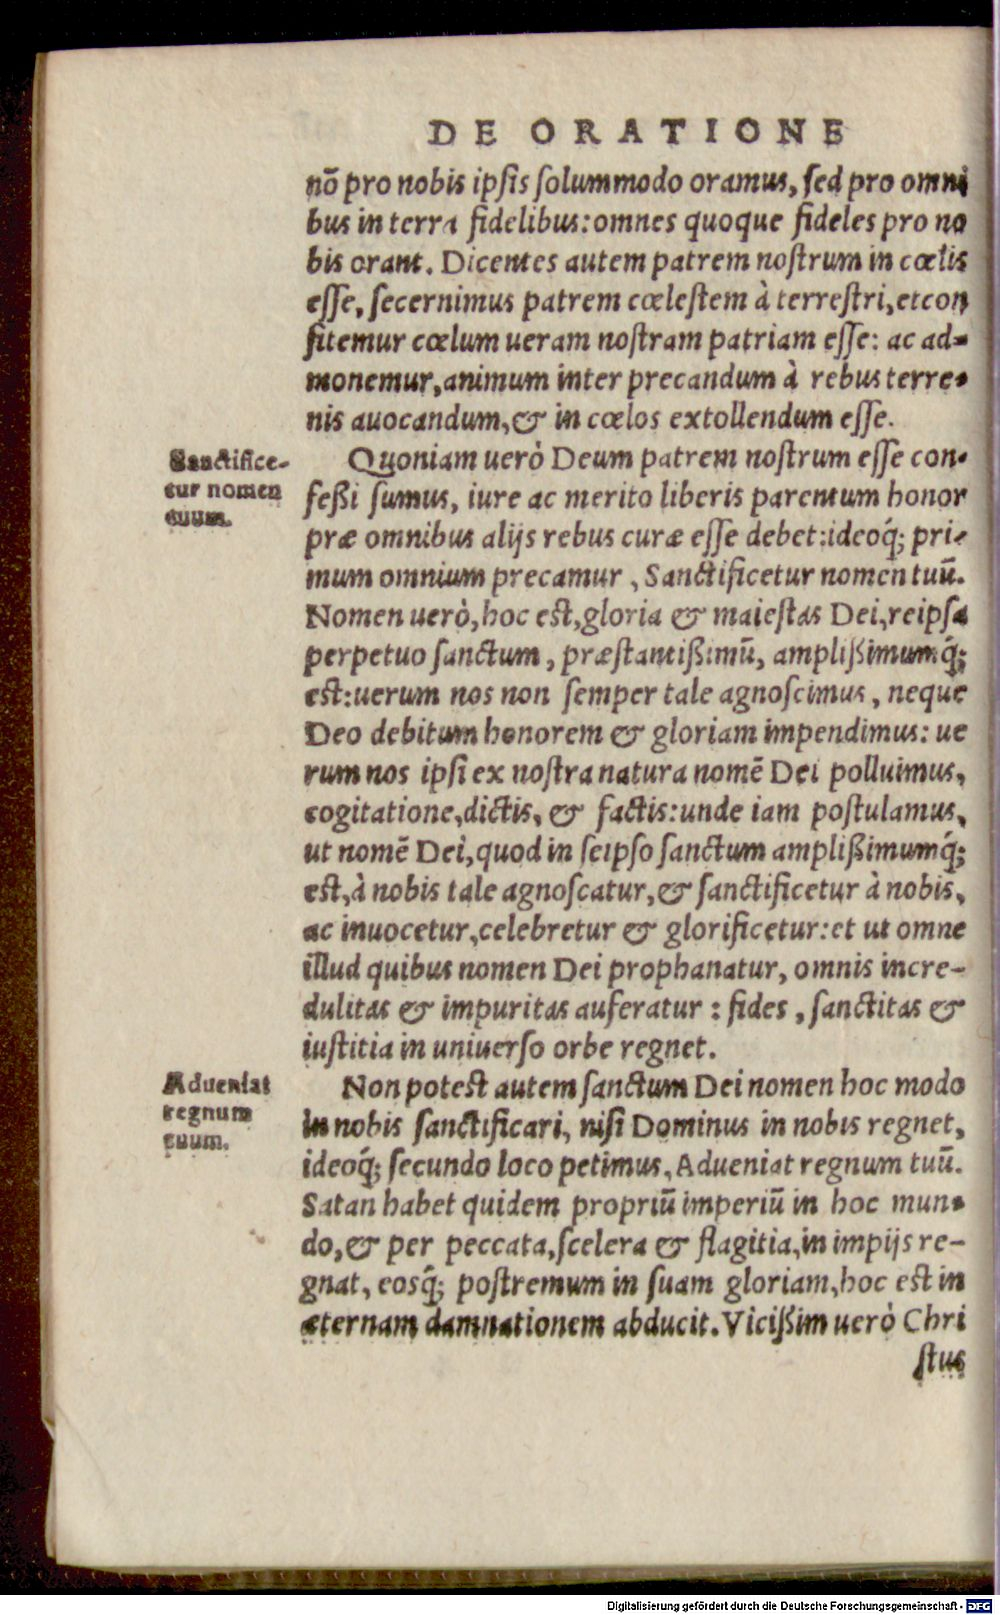 DE ORATIONE
nō pro nobis ipſis ſolummodo oramus, ſed pro omni
bus in terra fidelibus: omnes quoque fideles pro no
bis orant. Dicentes autem patrem noſtrum in cœlis
eſſe, ſecernimus patrem cœleſtem à terreſtri, et con
fitemur cœlum ueram noſtram patriam eſſe: ac ad-
monemur, animum inter precandum à rebus terre-
nis auocandum, & in cœlos extollendum eſſe.
Sanctifice-
tur nomen
tuum.
Quoniam uerò Deum patrem noſtrum eſſe con-
feßi ſumus, iure ac merito liberis parentum honor
præ omnibus alijs rebus curæ eſſe debet: ideoq́; pri-
mum omnium precamur, Sanctificetur nomen tuū.
Nomen uerò, hoc eſt, gloria & maieſtas Dei, reipſa
perpetuo ſanctum, præſtantißimū, amplißimumq́;
eſt: uerum nos non ſemper tale agnoſcimus, neque
Deo debitum honorem & gloriam impendimus: ue
rum nos ipſi ex noſtra natura nomē Dei polluimus,
cogitatione, dictis, & factis: unde iam poſtulamus,
ut nomē Dei, quod in ſeipſo ſanctum amplißimumq́;
eſt, à nobis tale agnoſcatur, & ſanctificetur à nobis,
ac inuocetur, celebretur & glorificetur: et ut omne
illud quibus nomen Dei prophanatur, omnis incre-
dulitas & impuritas auferatur: fides, ſanctitas &
iuſtitia in uniuerſo orbe regnet.
Adueniat
regnum
tuum.
Non poteſt autem ſanctum Dei nomen hoc modo
in nobis ſanctificari, niſi Dominus in nobis regnet,
ideoq́; ſecundo loco petimus, Adueniat regnum tuū.
Satan habet quidem propriū imperiū in hoc mun-
do, & per peccata, ſcelera & flagitia, in impijs re-
gnat, eosq́; poſtremum in ſuam gloriam, hoc eſt in
æternam damnationem abducit. Vicißim uerò Chri
ſtus
Digitalisierung gefördert durch die Deutsche Forschungsgemeinschaft - DFG